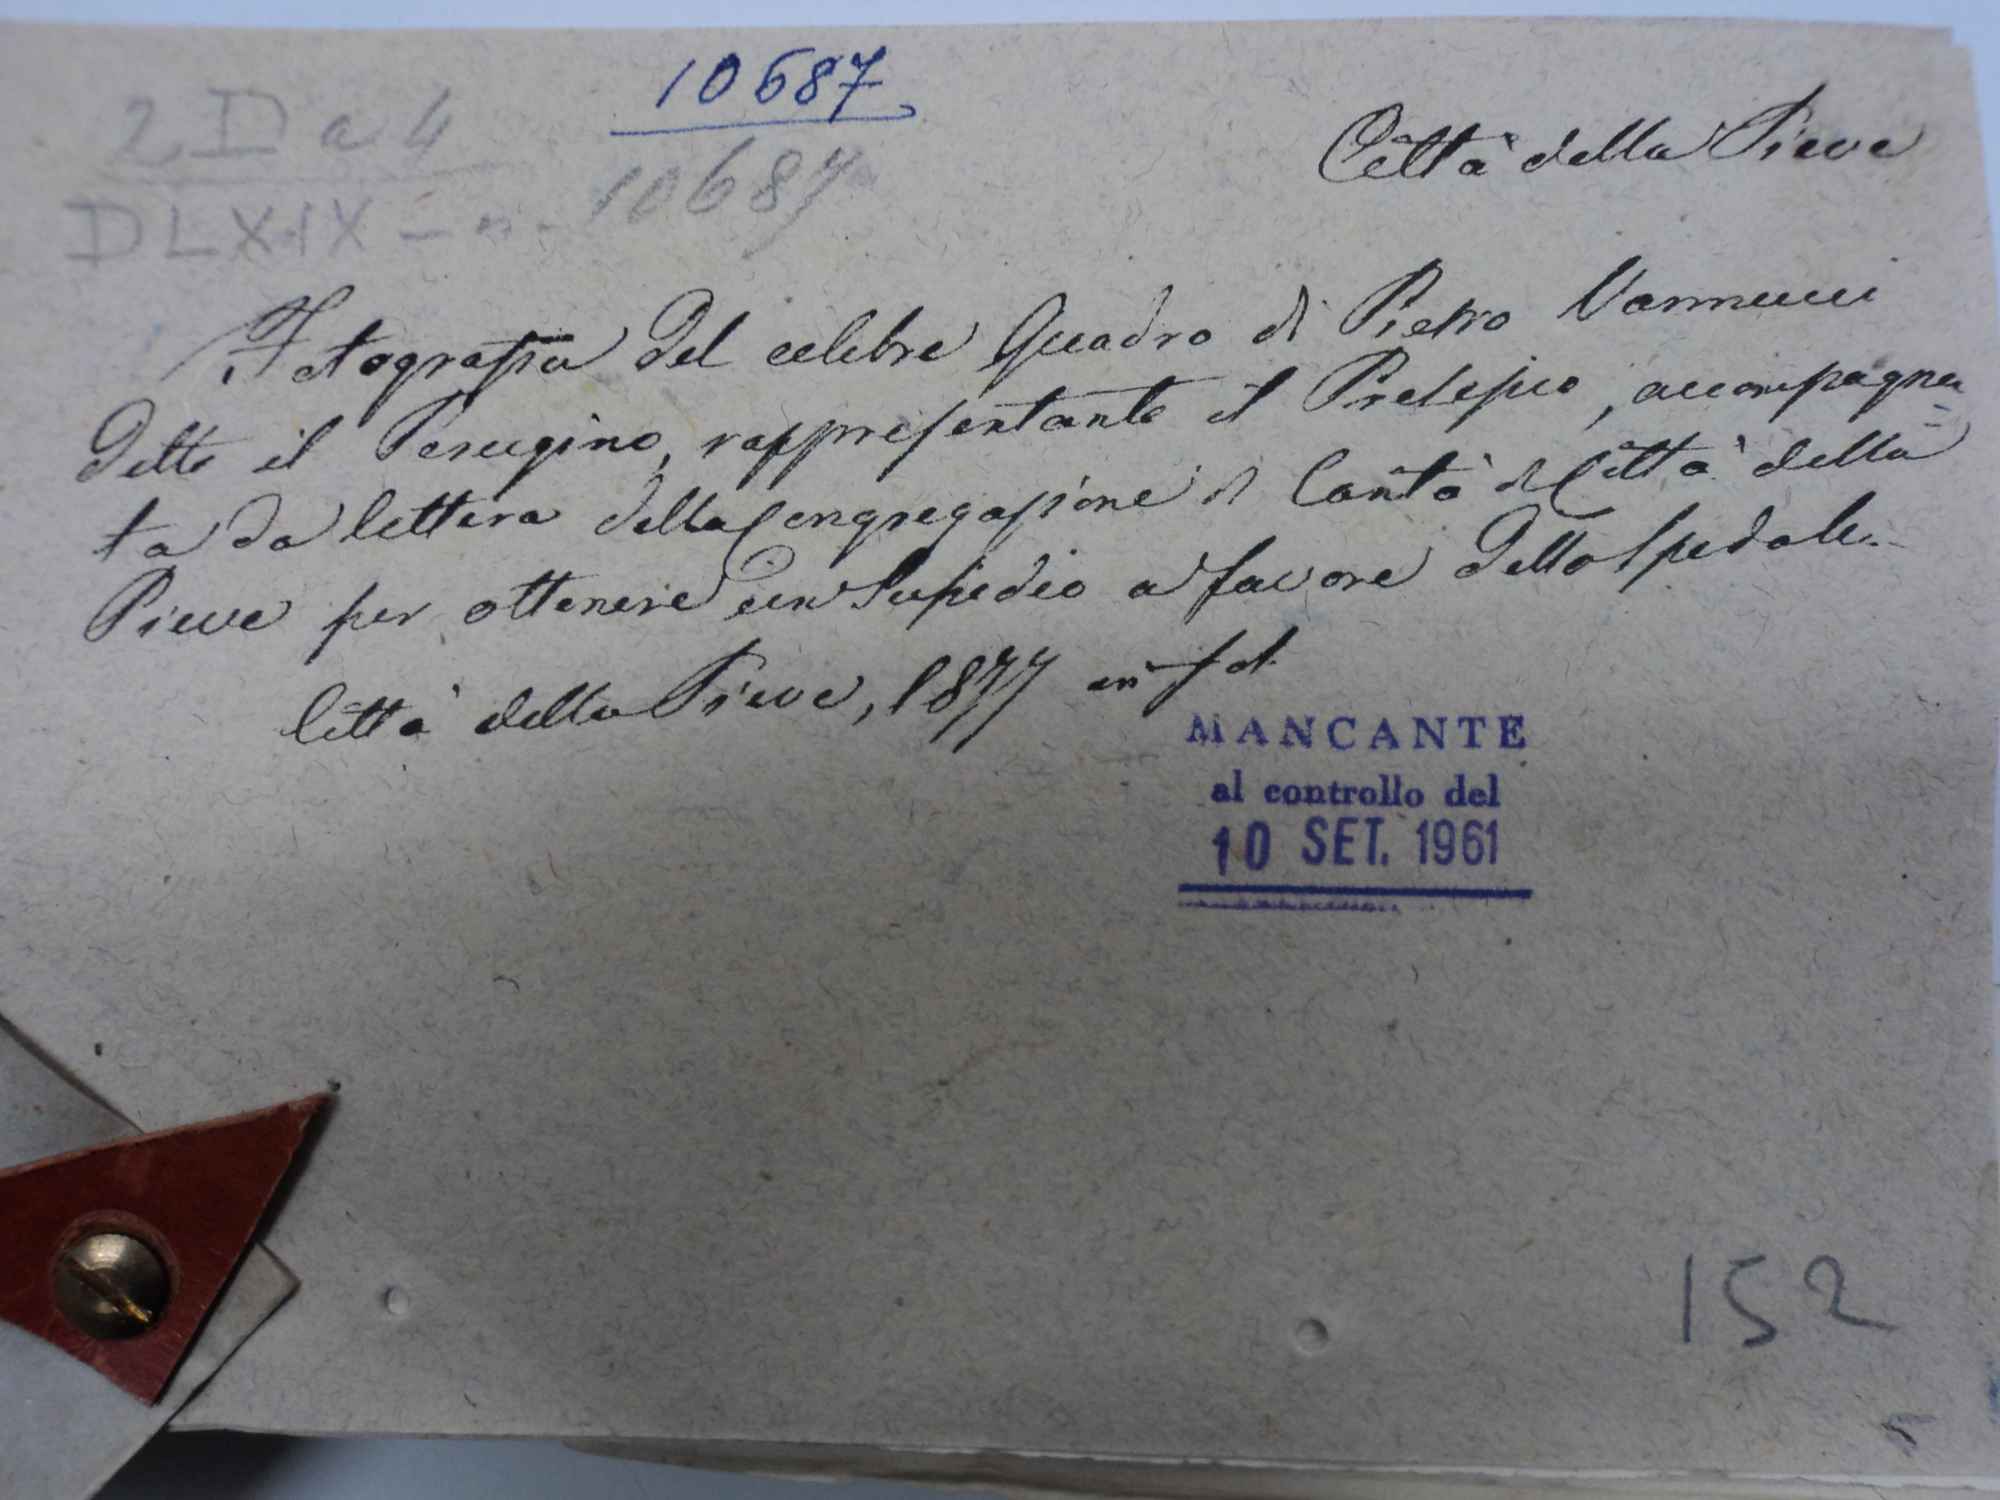 10687
2 D a 4
DLXIX - n. 10687
Città della Pieve
Fotografia del celebre Quadro di Pietro Vannucci
detto il Perugino, rappresentante il Presepio, accompagna
ta da lettera della Congregazione di Carità di Città della
Pieve per ottenere un Sussidio a favore dello Spedale.
Città della Pieve, 1877 in fol.
MANCANTE
al controllo del
10 SET. 1961
152